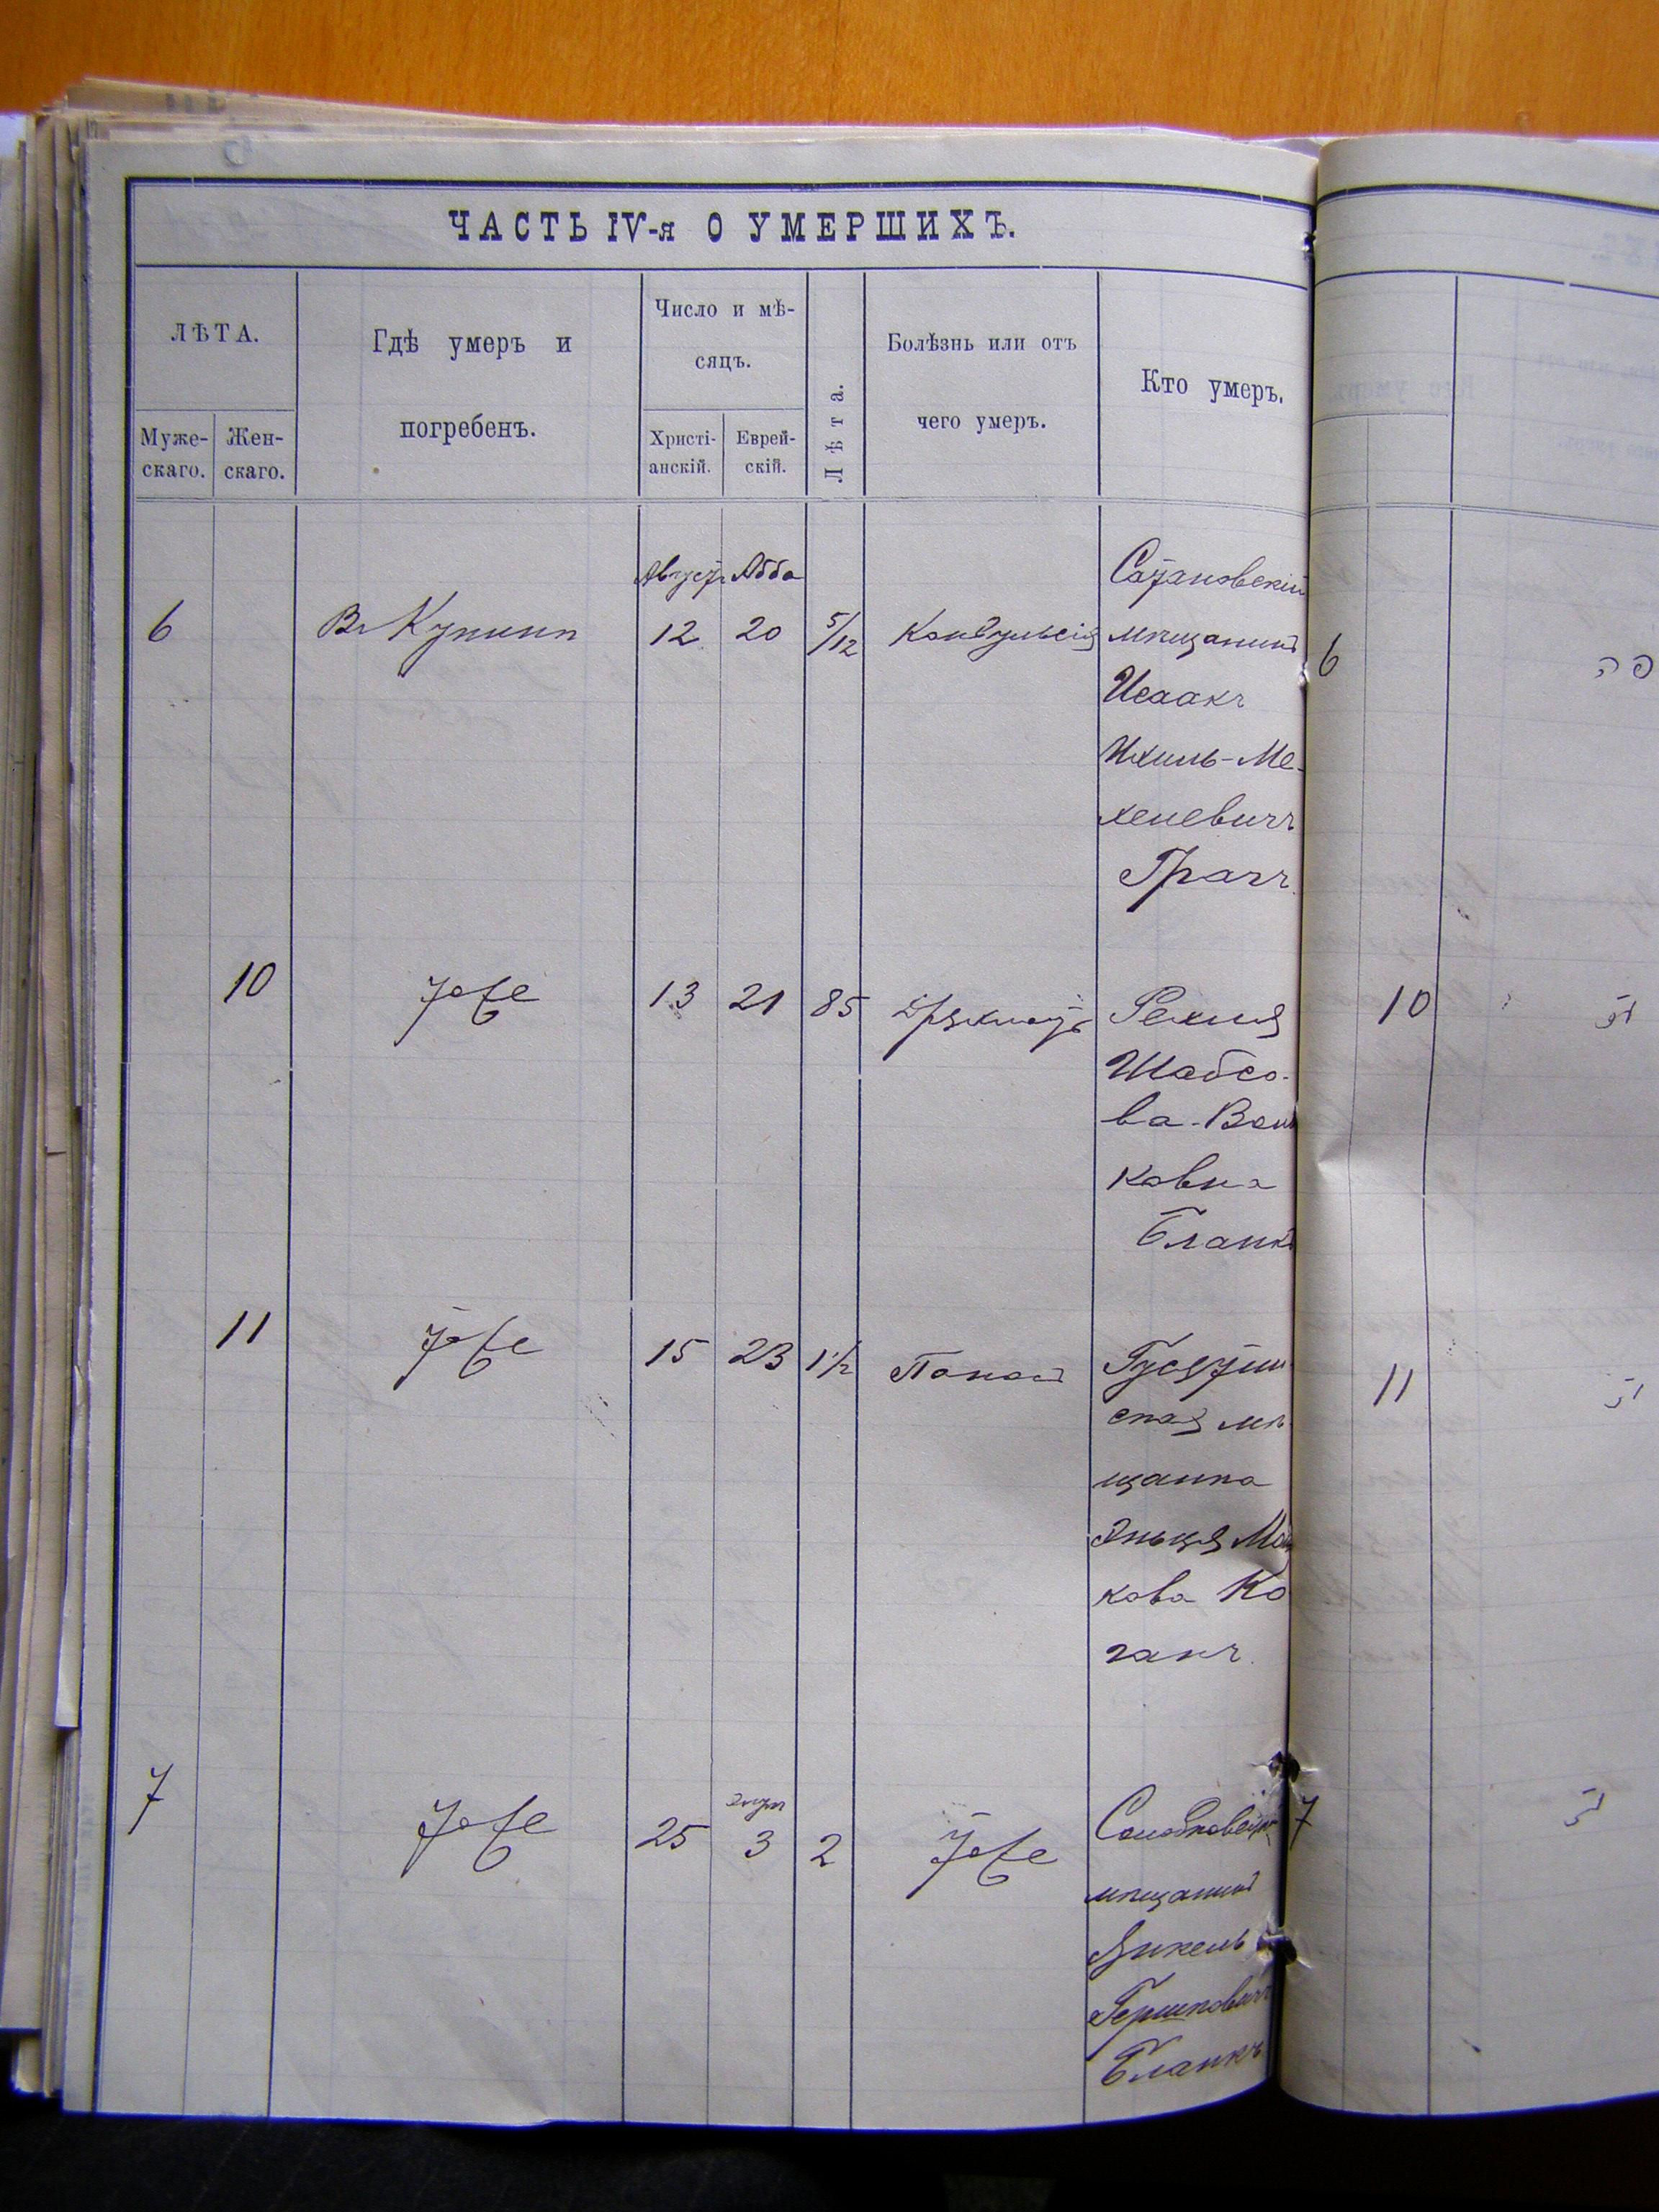 ЧАСТЬ IV-я О УМЕРШИХЪ.
ЛѢТА.
Муже-
скаго.
Жен-
скаго.
Гдѣ умеръ и
погребенъ.
Число и мѣ-
сяцъ.
Христі-
анскій.
Еврей-
скій.
Лѣта.
Болѣзнь или отъ
чего умеръ.
Кто умеръ.
Августъ Абба
6 Въ Купинѣ 12 20 5/12 Конвульсія
Сатановскій
мѣщанинъ
Исаакъ
Ихиль-Ме-
хелевичъ
Грачъ.
10 Тоже 13 21 85 Дряхлость
Рехля
Шабсо-
ва-Воль
ковна
Бланкъ
11 Тоже 15 23 1 1/2 Поносъ
Гусятин
ская мѣ
щанка
Эньця
кова Ко
ганъ.
Элул
7 Тоже 25 3 2 Тоже
мѣщанинъ
Янкель
Гершковичъ
Бланкъ
6
פה
10
11
7